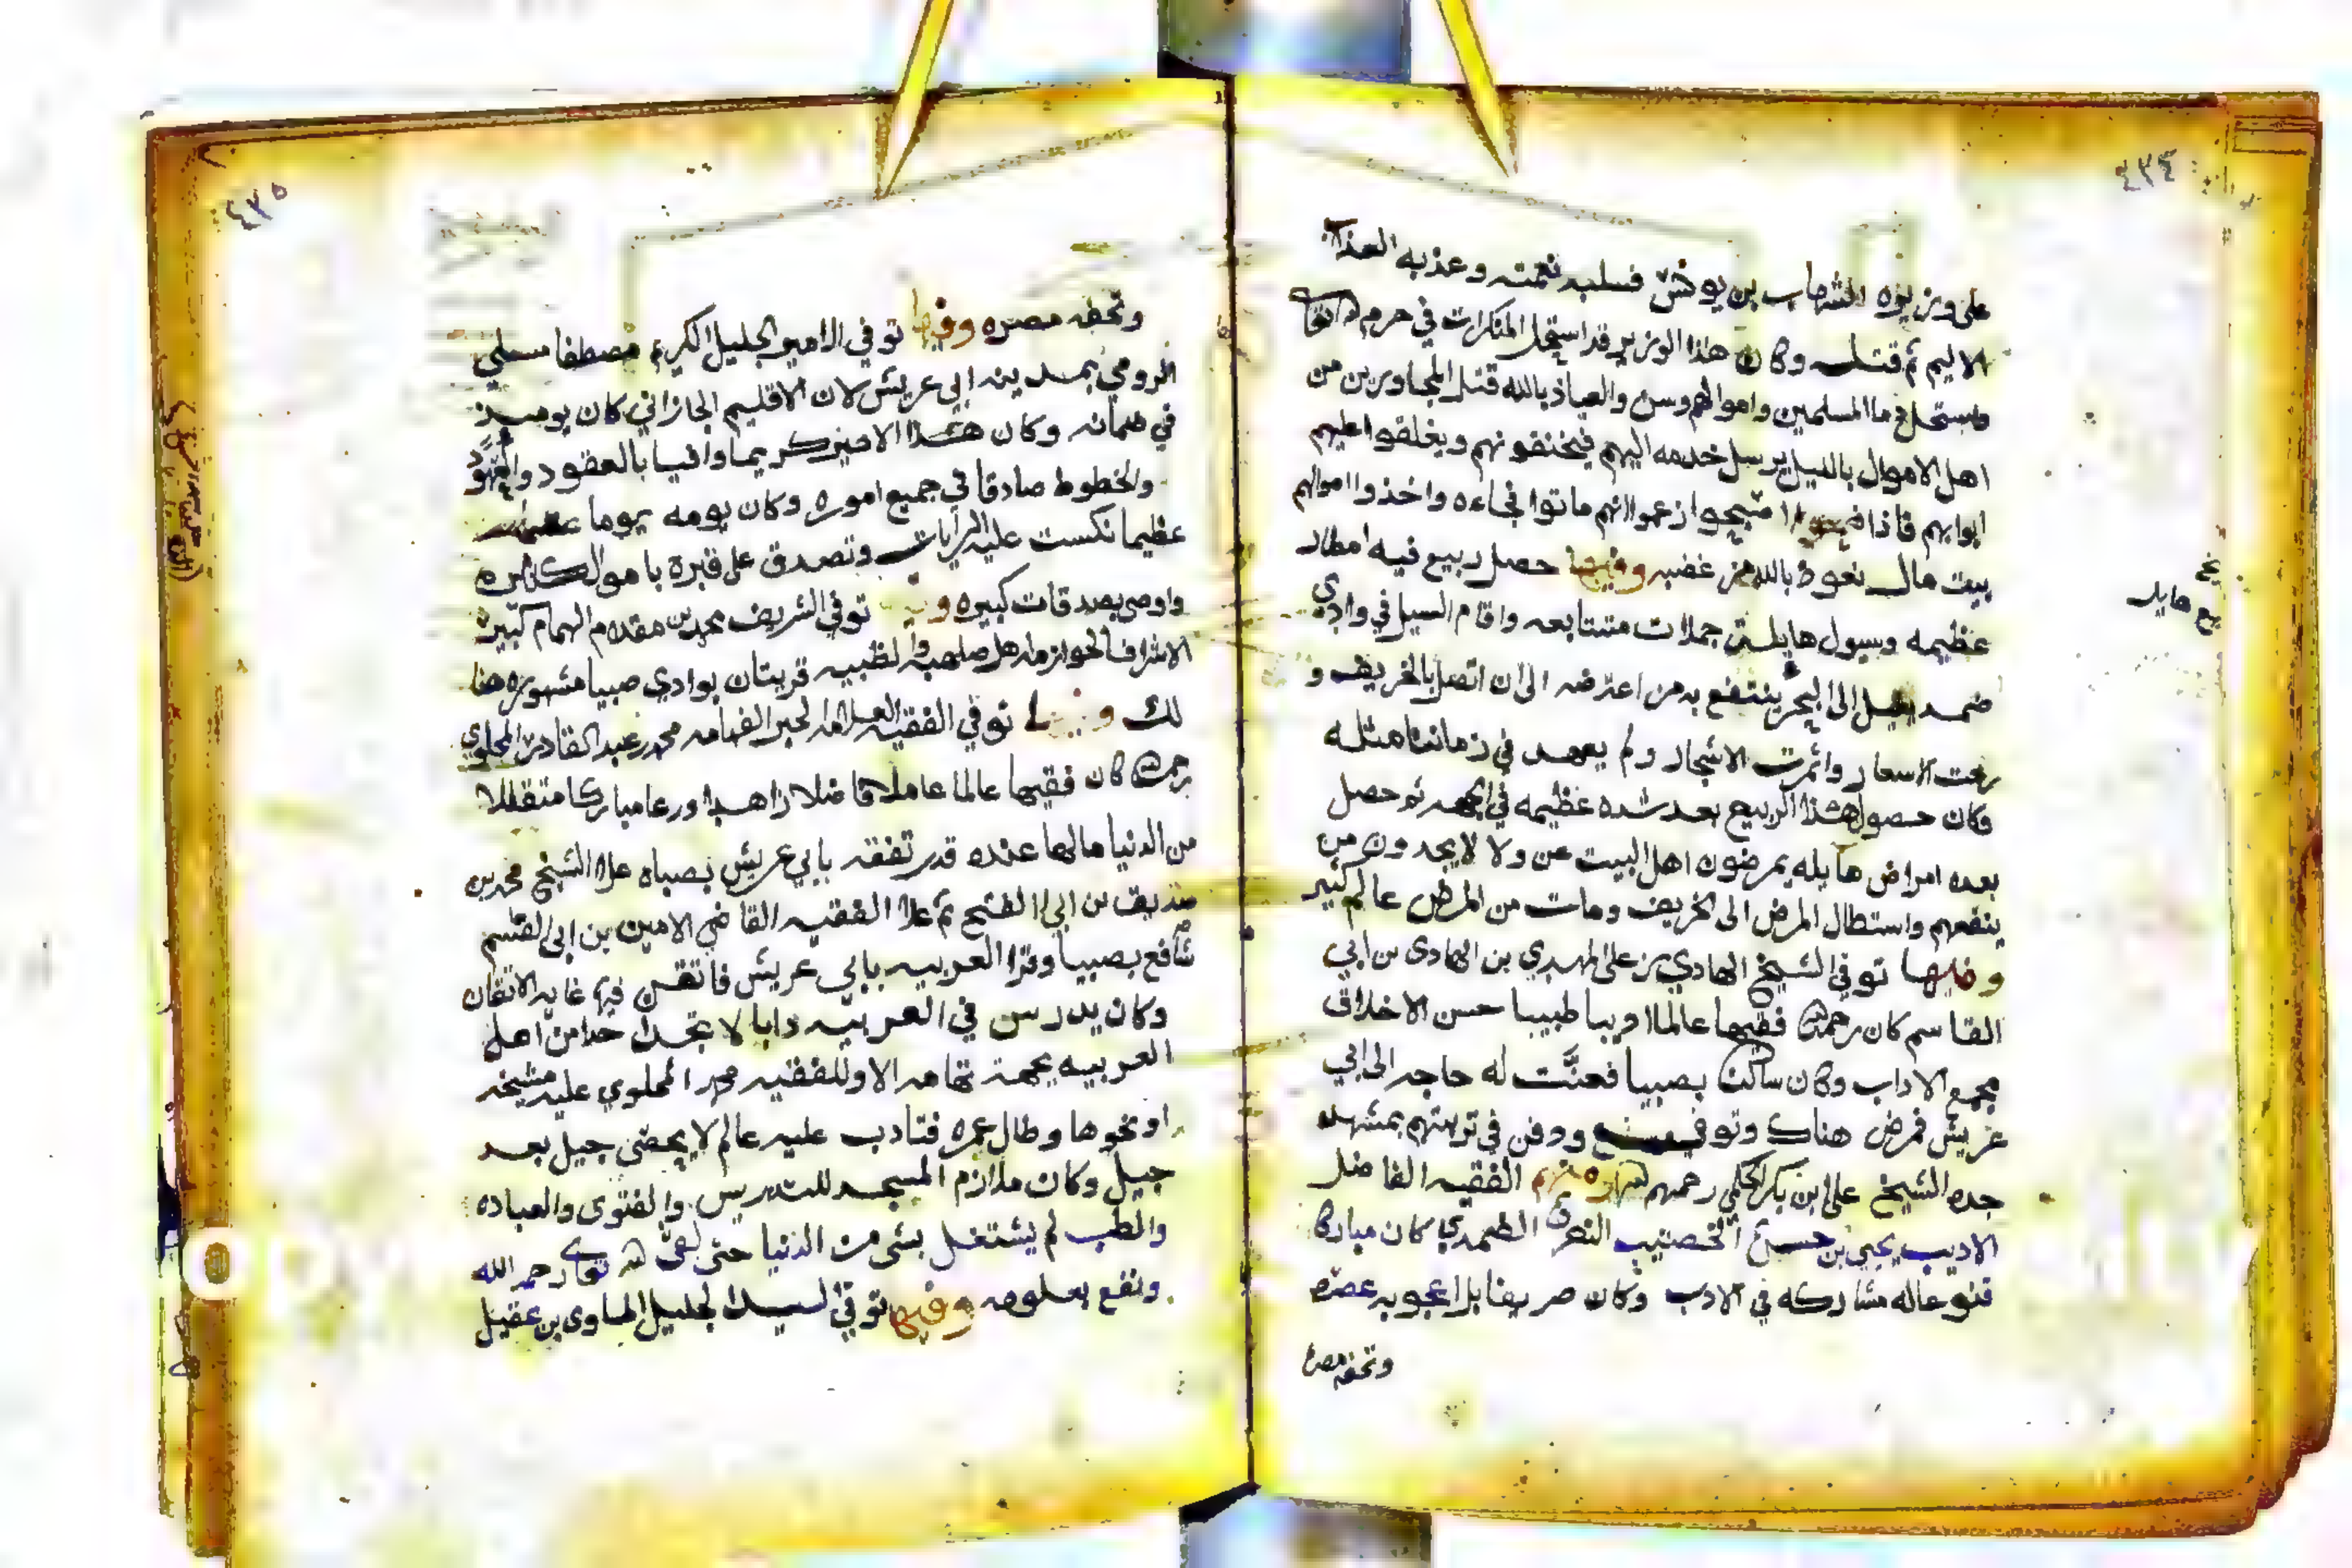 ٤٣٤
على وزيره الشهاب بن يونس فسلبه نعمته وعذبه العذاب
الاليم ثم قتله وكان هذا الوزير قد استحل المنكرات في حرم الله تعا
ويستحل دما المسلمين واموالهم وسن والعياذ بالله قتل المجاورين من
اهل الاموال بالليل يرسل خدمه اليهم فيخنقونهم ويغلقوا عليهم
ابوابهم فاذا اصبحوا زعموا انهم ماتوا فجاءه واخذوا اموالهم
بيت مال نعوذ بالله من غضبه وفيها حصل ربيع فيه امطار
عظيمه وسيول هايله جملات متتابعه واقام السيل في وادى
ضمد الى البحر ينتفع به من اعترضه الى ان اتصل بالخريف و
رخت الاسعار واثمرت الاشجار ولم يعهد في زماننا مثله
وكان حصول هذا الربيع بعد شده عظيمه في الجهه ثم حصل
بعده امراض هايله يمرضون اهل البيت عن ولا لا يجدون من
ينفعهم واستطال المرض الى الخريف ومات من المرض عالم كثير
وفيها توفي الشيخ الهادي بن علي المهدي بن الهادى بن ابي
القاسم كان رحمه الله فقيها عالما اديبا طبيبا حسن الاخلاق
مجمع الاداب وكان ساكن بصبيا فعنت له حاجه الى ابي
عريش فمرض هناك وتوفي ودفن في تربتهم بمشهد
جده الشيخ علي بن بكر الحكمي رحمهم الله ومنهم الفقيه الفاضل
الاديب يحيى بن حسين الضمدي كان مباركا
قنوعا له مشاركه في الادب وكان ضريفا بل اعجوبه عصره
وتحفه مصره
هايل
٤٣٥
وتحفه مصره وفيها توفي الامير الجليل الكريم مصطفا
الرومي بمدينه ابي عريش لان الاقليم الجازاني كان يوميذ
في ضمانه وكان هذا الامير كريما وافيا بالعقود والعهود
والخطوط صادقا في جميع اموره وكان يومه يوما
عظيما نكست عليه الرايات وتصدق على قبره باموال كثيره
واوصى بصدقات كبيره وفيها توفي الشريف محمد بن مقدم الهمام كبير
الاشراف الخوازمه اهل صلهبه والظبيه قريتان بوادي صبيا مشهوره هنا
لك وفيها توفي الفقيه العلامه الحبر الفهامه محمد عبد القادر المحلوي
رحمه الله كان فقيها عالما عاملا فاضلا زاهدا ورعا مباركا متقللا
من الدنيا مالها عنده قدر تفقه بابي عريش بصباه على الشيخ محمد بن
صديق بن ابي الفتح ثم على الفقيه القاضي الامين بن ابي القسم
شافع بصبيا وقرا العربيه بابي عريش فاتقن فيها غايه الاتقان
وكان يدرس في العربيه دابا لا تجد احدا من اهل
العربيه بجهة تهامه الا وللفقيه محمد المحلوي عليه مشيخه
او نحوها وطال عمره فتادب عليه عالم لا يحصى جيل بعد
جيل وكان ملازم المسجد للتدريس والفتوى والعباده
والطب لم يشتغل بشى من الدنيا حتى لقي الله تعالى رحمه الله
ونفع بعلومه وفيها توفي السيد الجليل المساوى بن عقيل